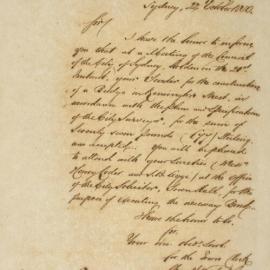 Sydney, 22 October 1850.
Sir,
I have the honor to inform
you that at a Meeting of the Council
of the City of Sydney, holden on the 21st
Instant, your Tender for the construction
of a Bridge in Street, in
accordance with the plan and Specification
of the City Surveyor, for the sum of
Seventy seven pounds (£77) Sterling
was accepted. You will be pleased
to attend with your Sureties (Messrs
Henry and ) at the Office
of the City Solicitor, Town Hall, for the
purpose of executing the necessary Bond.
I have the honor to be,
Sir,
Your Obdt Servt
for the Town Clerk